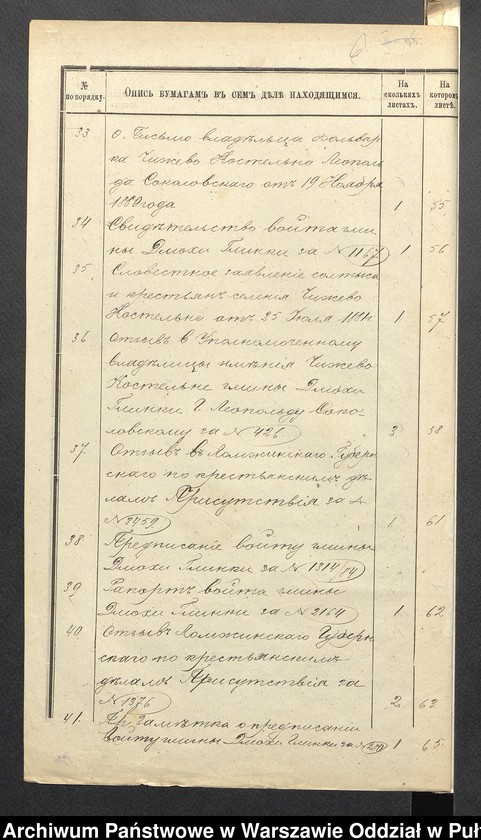 6
№
по порядку.
Опись бумагамъ въ семъ дѣлѣ находящимся.
На
сколькихъ
листахъ.
На
которомъ
листѣ.
33 Письмо владѣльца фольвар
ка Чижево Костельно Леополь
да Соколовскаго отъ 19 Ноября
года 1 55
34 Свидѣтельство войта гми
ны Дмохи Глинки за № 1167 1 56
35 Словестное заявленіе солтыса
и крестьянъ селенія Чижево
Костельно отъ 25 Іюля 1 57
36 Отзывъ Уполномоченному
владѣлицы имѣнія Чижево
Костельне гмины Дмохи
Глинки Г. Леопольду Соко-
ловскому за № 426 3 58
37 Отзывъ Ломжинскаго Губерн
скаго по крестьянскимъ дѣ
ламъ Присутствія за
№ 3459 1 61
38 Предписаніе войту гмины
Дмохи Глинки за № 1314/84
39 Рапортъ войта гмины
Дмохи Глинки за № 2164 1 62
40. Отзывъ Ломжинскаго Губерн
скаго по крестьянскимъ
дѣламъ Присутствія за
№ 1376 2 63
41. Замѣтка о предписаніи
войту гмины Дмохи Глинки за № 1 65
Archiwum Państwowe w Warszawie Oddział w Puł